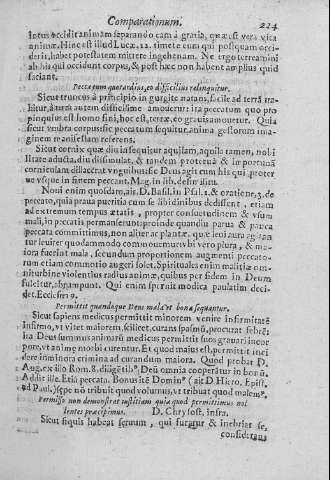 Comparationum. 224
intus occidit animam separando eam à gratia, quæ est vera vita
animæ. Hinc est illud Lucæ. 12. timete eum qui postquam occi-
derit, habet potestatem mittere in gehenam. Ne ergo terreamini
ab his qui occidunt corpus, & post hæc non habent amplius quid
faciant.
Peccatum quo tardius, eo difficilius relinquitur.
Sicut truncus à principio in gurgite natans, facile ad terrã tra-
hitur, at
pinquius est homo fini, hoc est, terræ, eo grauis amouetur. Quia
sicut vmbra corpus sic peccatum sequitur, anima gestorum imag-
inem manifestam referens.
Sicut cornix quæ diu insequitur aquilam, aquila tamen, nobi-
litate aducta, diu dissimulat, & tandem proterua & importunã
corniculam dillacerat vnguibus: sic Deus agit cum his qui proter
ue vsque in finem peccant. Mag. in lib. de similitu.
Noui enim quosdam, ait D. Basil. in Psal. 1. & oratione, 3. de
peccato, qui à prava pueritia cum se libidinibus dedissent, etiam
ad extremum tempus ætatis, propter consuetudinem & vsum
mali, in peccatis permanserunt: proinde quandiu parua & pauca
peccata committimus, non aliter ac plantæ, quæ leui aura agitan
tur leuiter quodammodo commouemur: vbi vero plura, & ma-
iora fuerint mala, secundum proportionem augmenti peccato-
rum etiam commotio augeri solet. Spirituales enim malitiæ om-
nitur bine violentius radius animæ, quibus per fidem in Deum
fulcitur, abrumpunt. Qui enim spernit modica paulatim deci-
det. Ecclesi. 19.
Permittit quandoque Deus mala vt bona sequantur.
Sicut sapiens medicus permittit minorem venire infirmitatē
infirmo, vt vitet maiorem, scilicet, curans spasmũ, procurat febrē:
ita Deus summus animarũ medicus permittit suos grauari incor
pore, vt animæ morbi curentur. Et quod maius est, permittit inci
dere in minora crimina ad curandum maiora. Quod probat D.
Aug. ex illo Rom. 8. diligētib⁹. Deũ omnia cooperãtur in bonũ.
Addit ille. Etiã peccata. Bonus itē Domin⁹ (ait D. Hiero, Epist.
ad Paul.) sæpe nõ tribuit quod volumus, vt tribuat quod malem⁹.
Permissio non demonstrat iustitiam quia quod permittimus nol
lentes præcipimus. D. Chrysost. infra.
Sicut siquis habeat seruum, qui furatur & inebriat se,
considerans